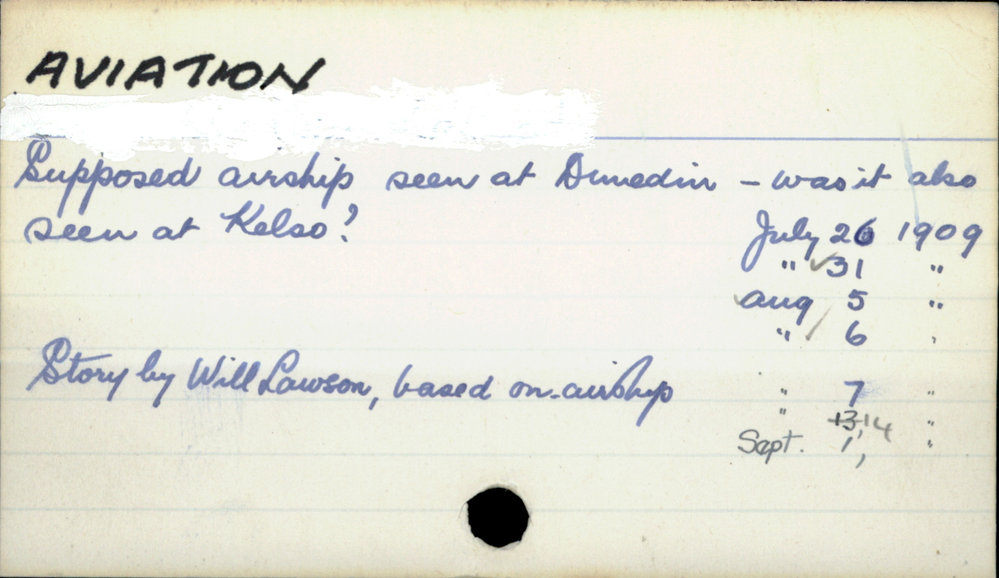 AVIATION
Supposed airship seen at Dunedin - was it also
seen at Kelso? July 26 1909
" ✓31 "
Aug 5 "
" / 6 "
Story by Will Lawson, based on airship " 7 "
" 13,14 "
Sept. 1,